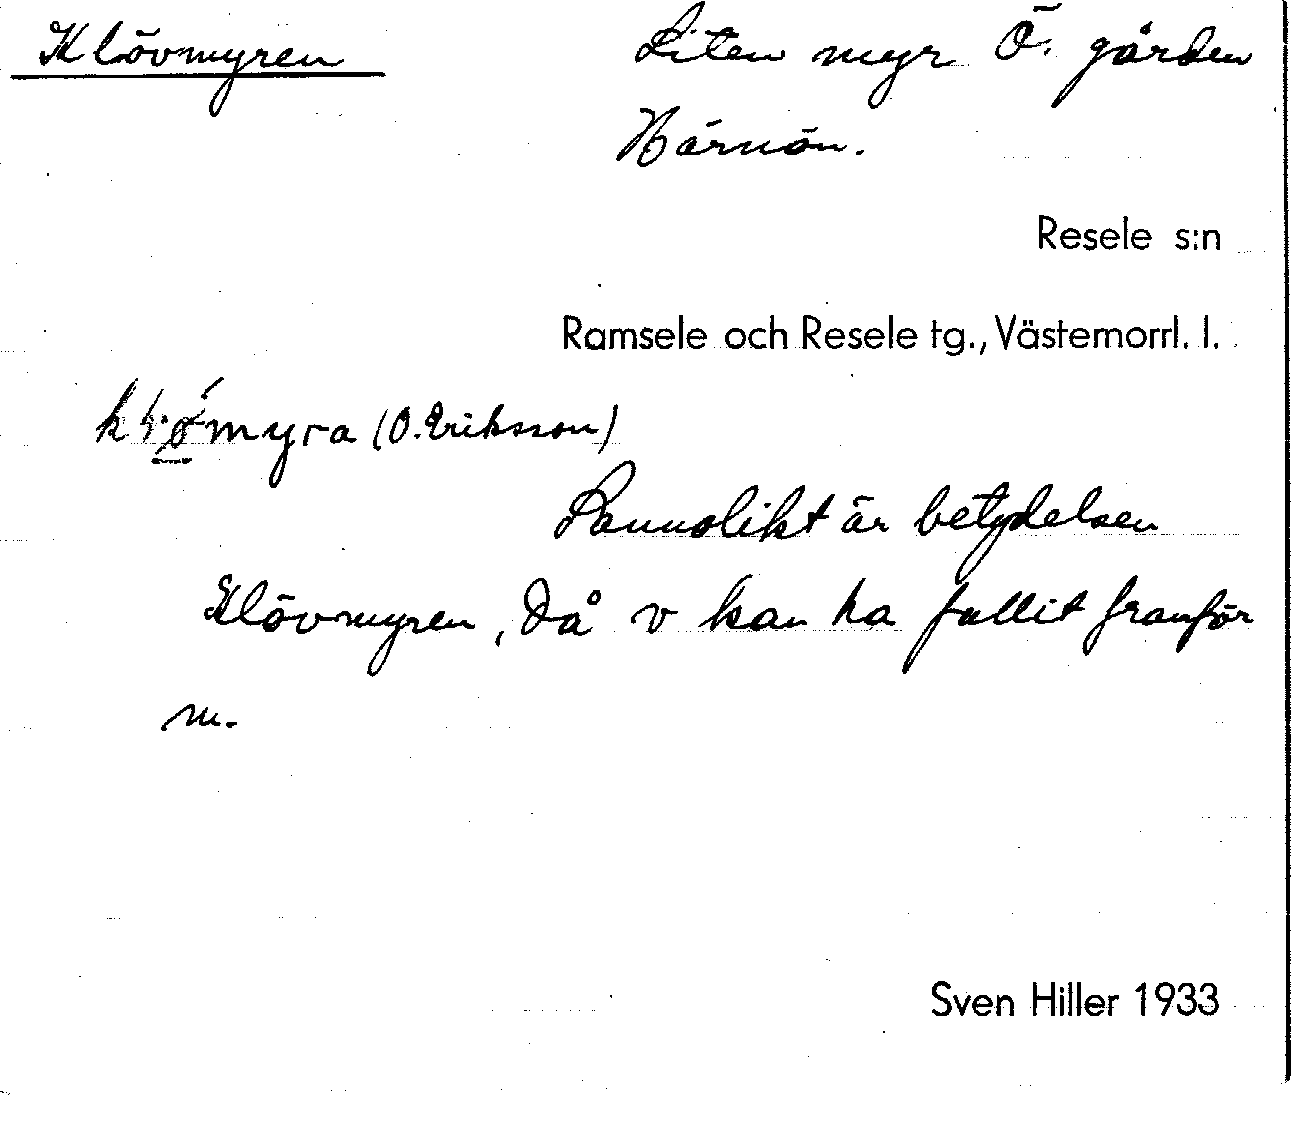 Klövmyren
Liten myr Ö. gården
Härnön.
Resele s:n
Ramsele och Resele tg., Västernorrl. l.
myra (O. Eriksson)
Sannolikt är betydelsen
Klövmyren, då v kan ha fallit framför
m.
Sven Hiller 1933